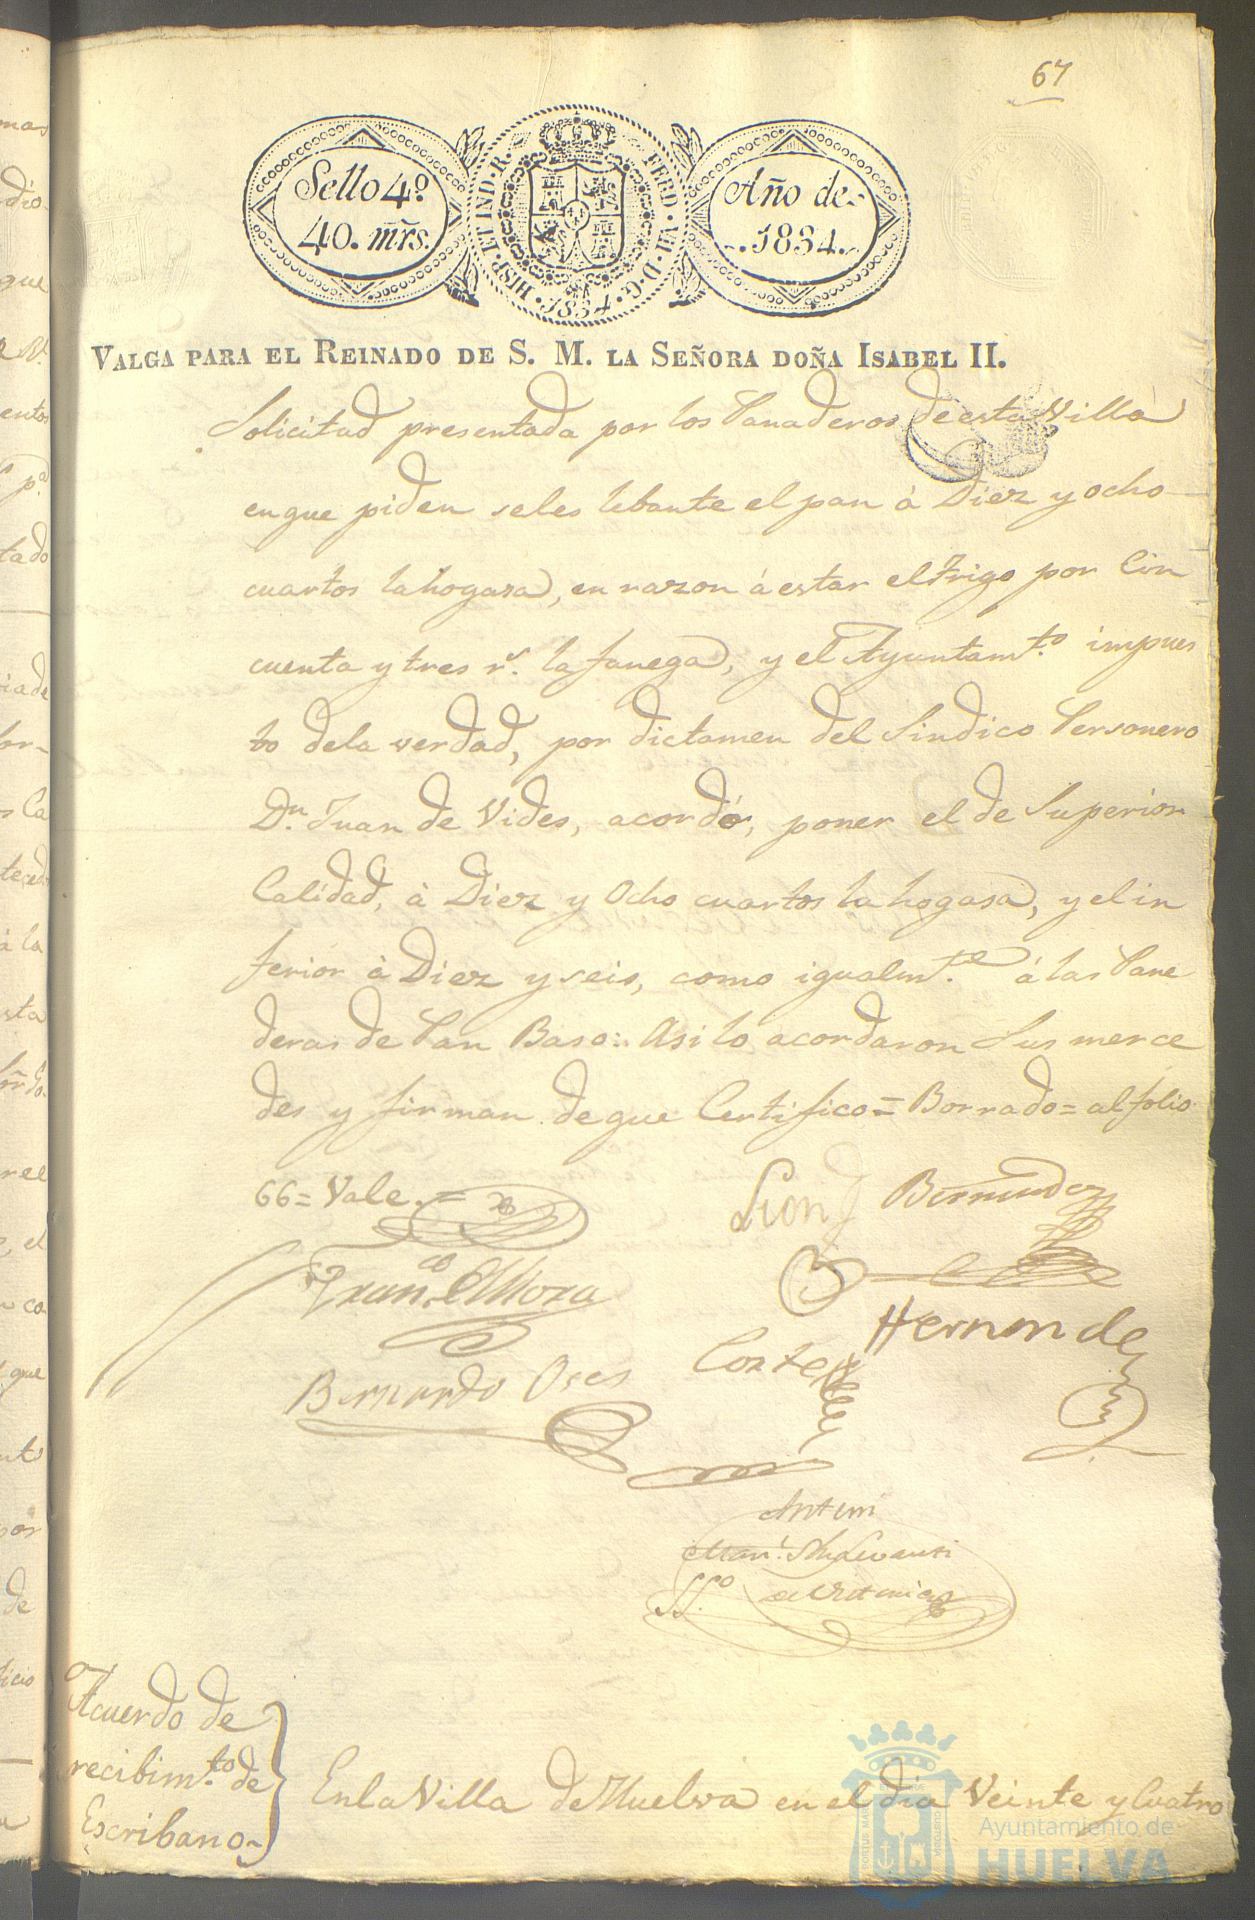 67
Sello 4º
40. mr̃s.
HISP. ET IND. R. FERD. VII. D. G. 1834.
Año de
.1834.
VALGA PARA EL REINADO DE S. M. LA SEÑORA DOÑA ISABEL II.
Solicitud presentada por los Panaderos de esta Villa
en que piden seles lebante el pan à Diez y ocho
cuartos la hogasa, en razon á estar el trigo por Cin
cuenta y tres rs. la fanega, y el Ayuntamto. impues
to dela verdad, por dictamen del Sindico Personero
Dn. Juan de Vides, acordó, poner el de Superior
Calidad, à Diez y Ocho cuartos la hogasa, y el in
ferior à Diez y seis, como igualmte. á las Pane
deras de Pan Baso: Asi lo acordaron Sus merce
des y firman de que Certifico = Borrado = al folio
66 = Vale. =
Bermudez
Franco. Mora
Hernande
Cortes
Bernardo Oses
Antemi
SSº
Acuerdo de
recibimto. de
Escribano
En la Villa de Huelva en el dia Veinte y Cuatro
Ayuntamiento de
HUELVA